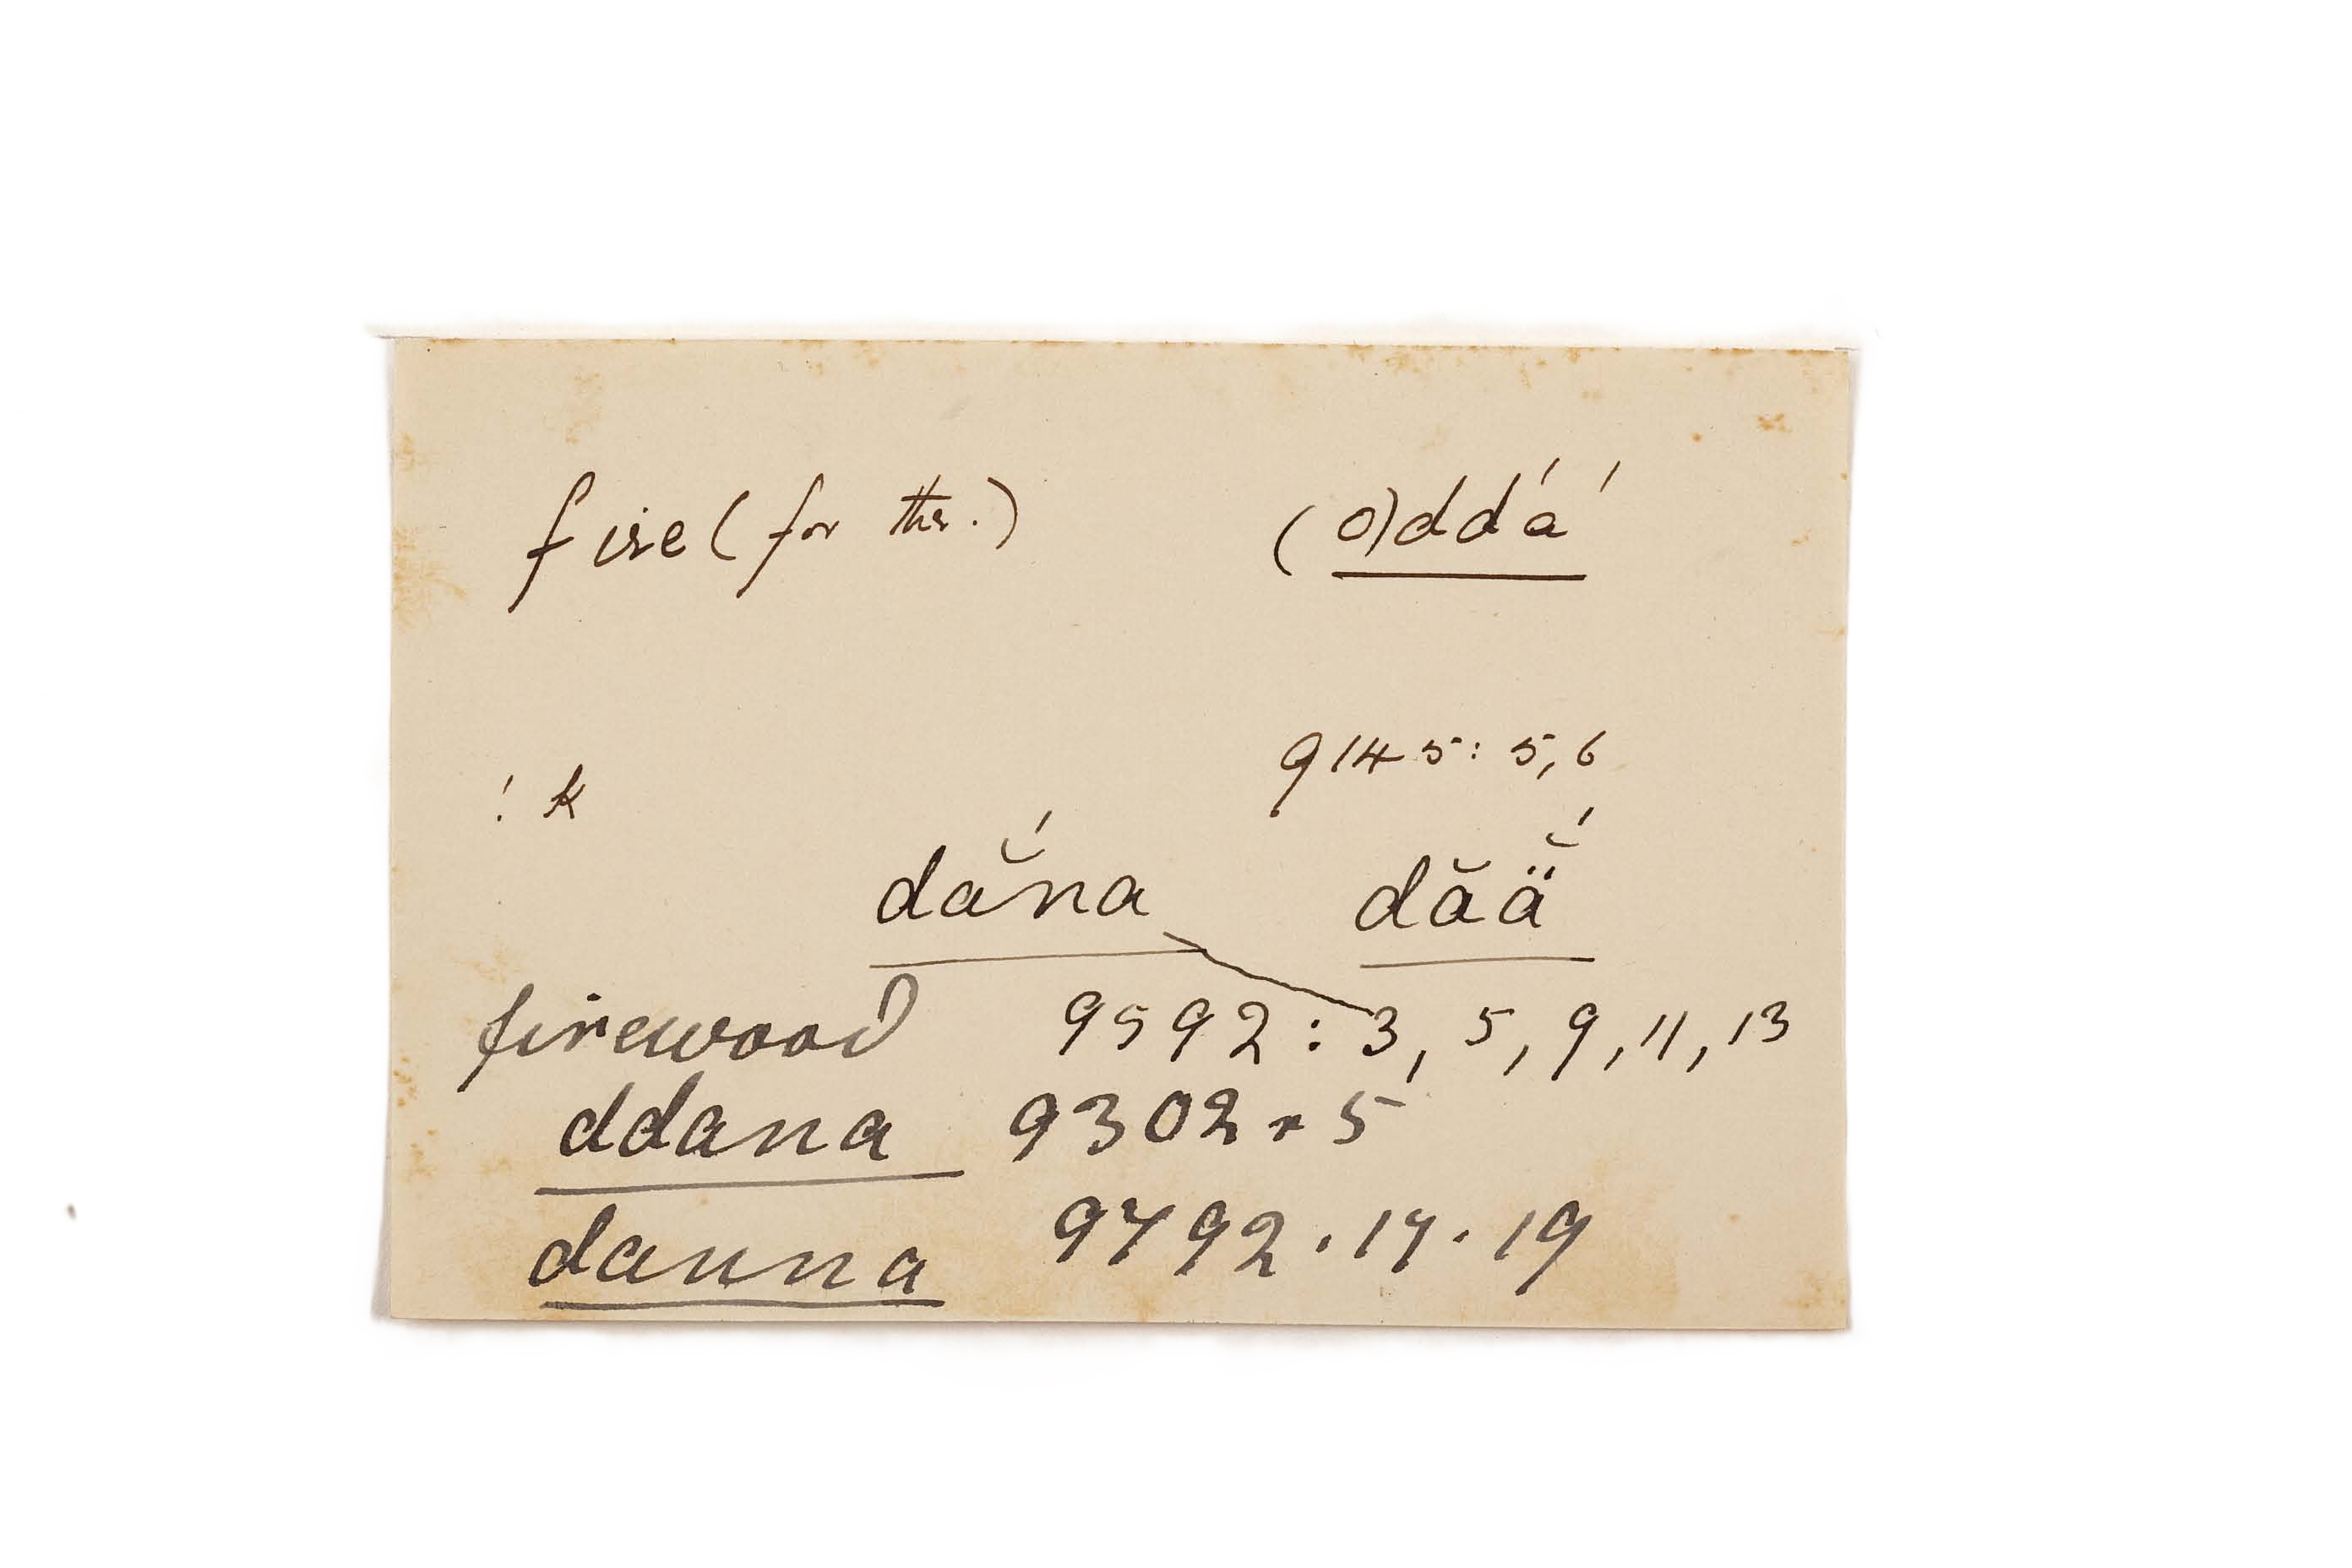 fire (for the.) (o)ddá ʹ
9145: 5, 6
! k
dắna dăä̆́
firewood 9592: 3, 5, 9, 11, 13
ddana 9302 . 5
danna 9792 . 17 . 19